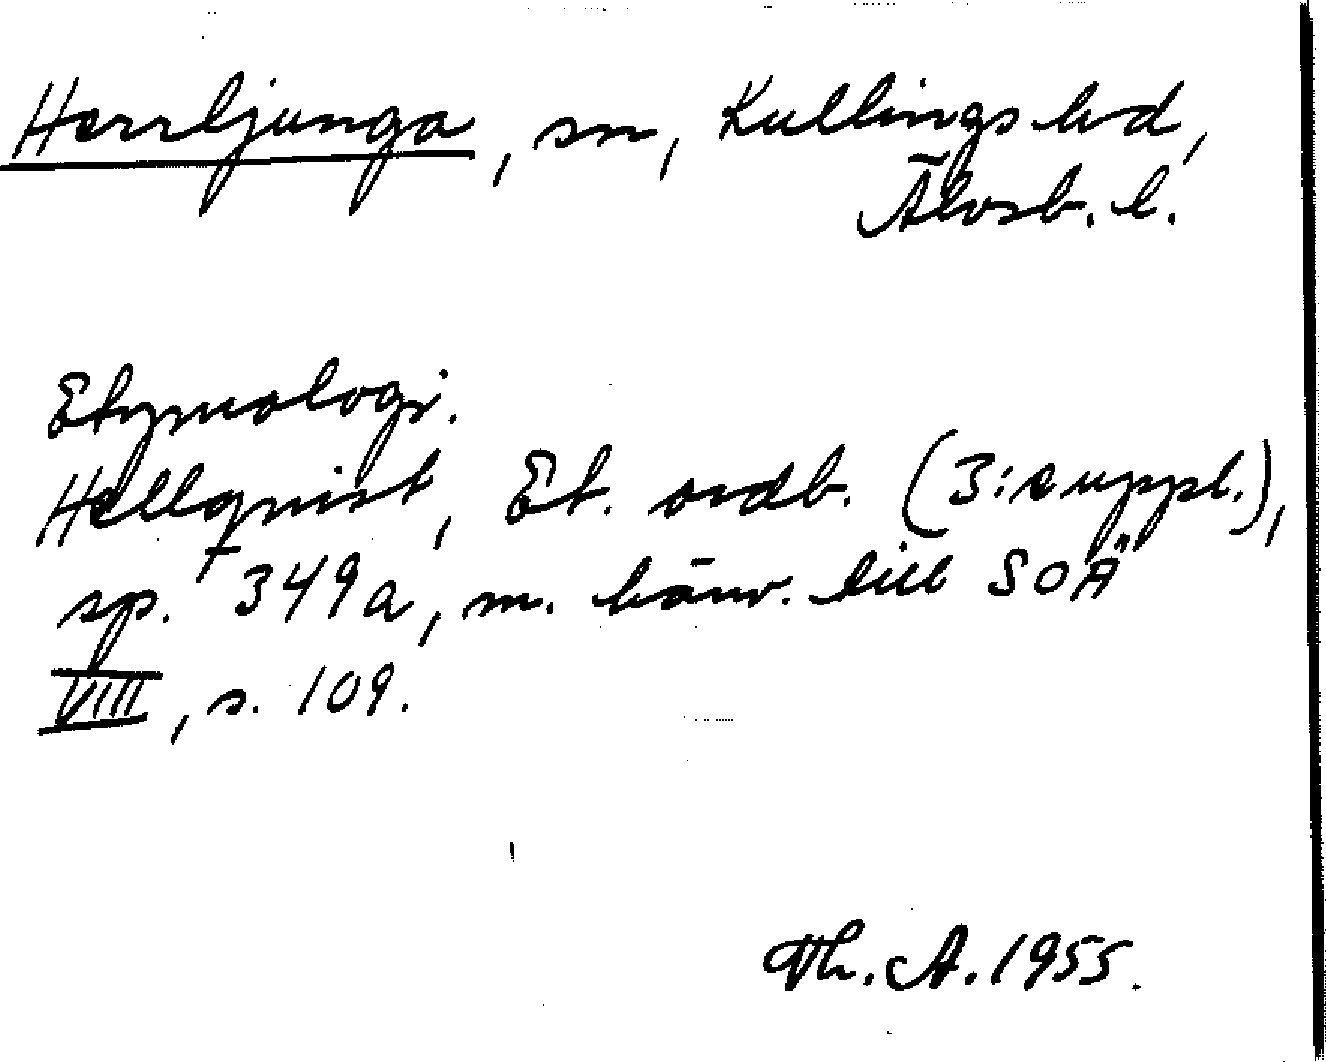 Herrljunga, sn, Kullings hd,
Älvsb. l.
Etymologi.
Hellqvist, Et. ordb. (3:e uppl.),
sp. 349a, m. hänv. till SOÄ
VIII, s. 109.
Th. A. 1955.